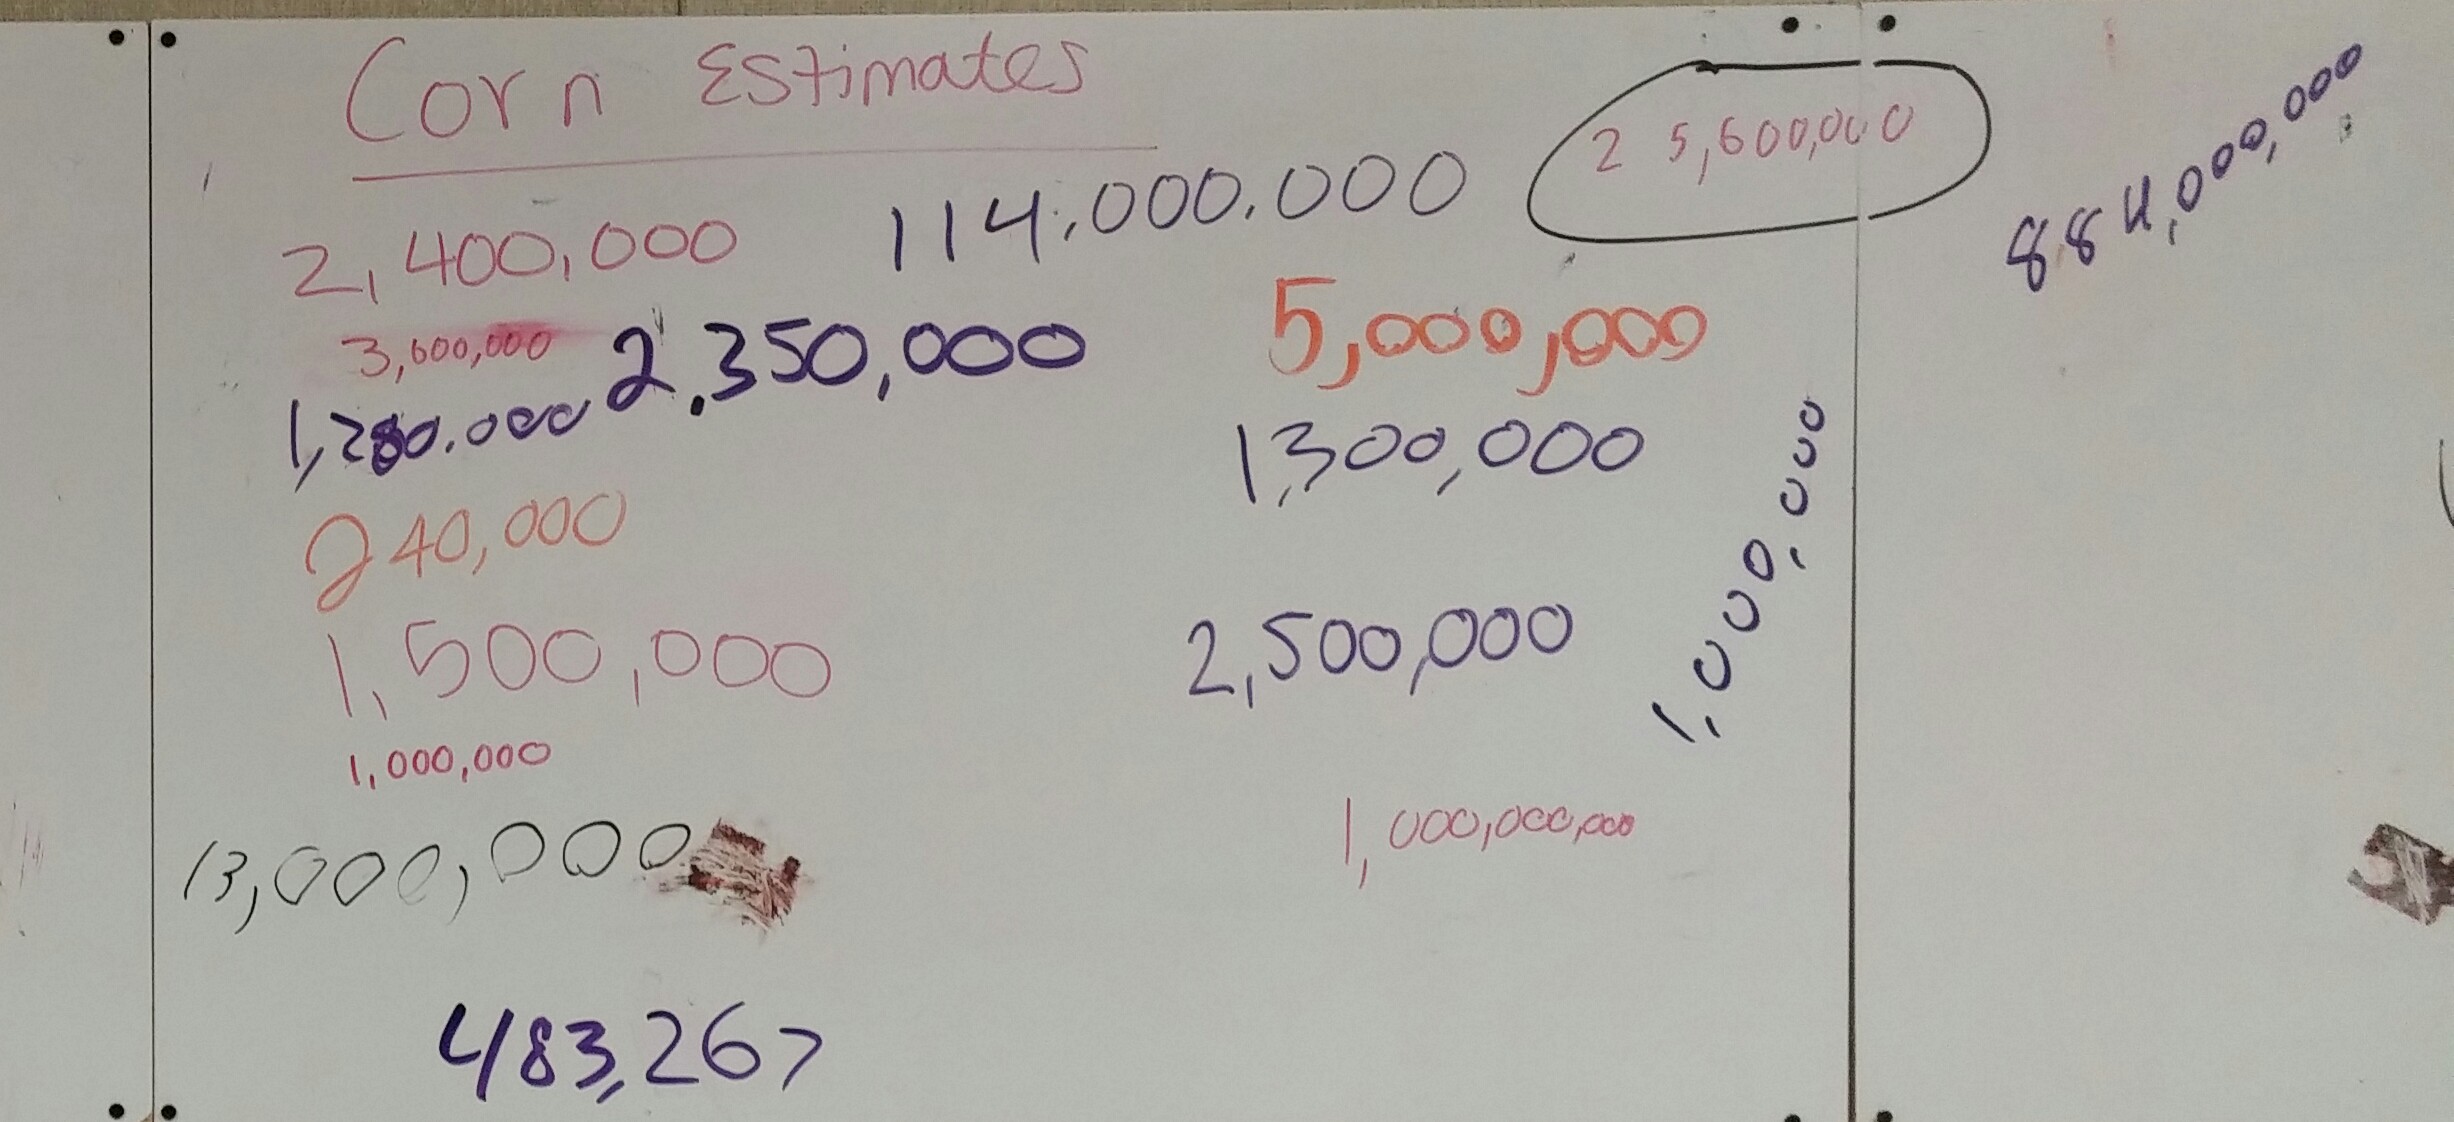 Corn Estimates
25,600,000
884,000,000
2,400,000
114,000,000
3,600,000
2,350,000
5,000,000
1,280,000
1,300,000
240,000
1,500,000
2,500,000
1,000,000
1,000,000
13,000,000
1,000,000,000
483,267